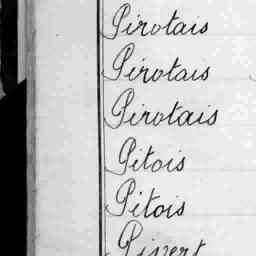 Pirotais
Pirotais
Pirotais
Pitois
Pitois
Pivert